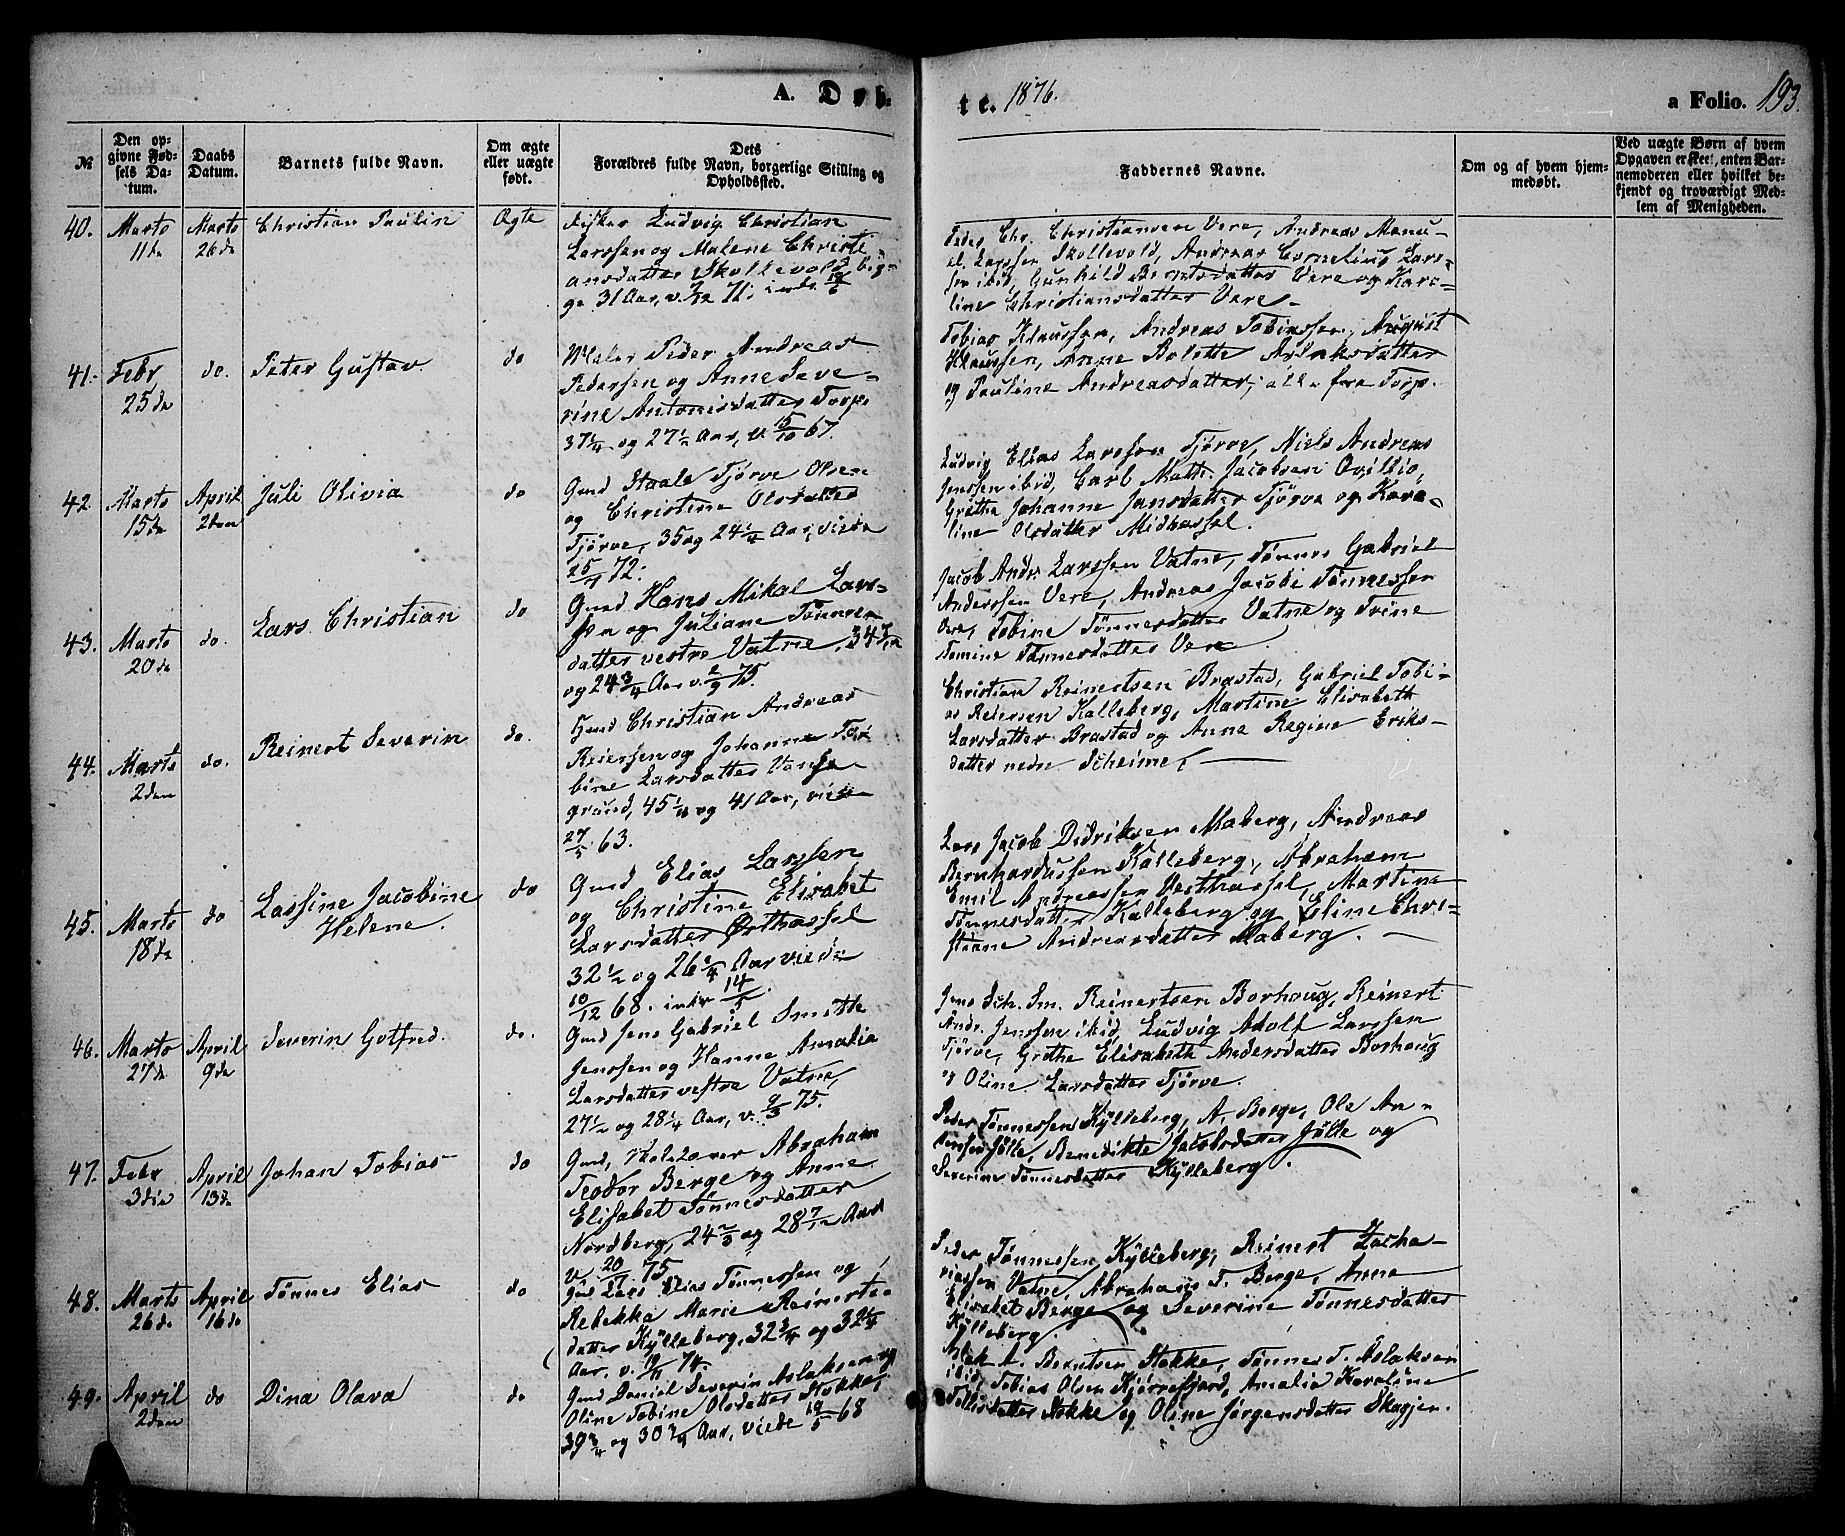 A. Døb-
te. 1876.
a Folio. 193.
№
Den op-
givne Fød-
sels Da-
tum.
Daabs
Datum.
Barnets fulde Navn.
Om ægte
eller uægte
født.
Dets
Forældres fulde Navn, borgerlige Stilling og
Opholdssted.
Faddernes Navne.
Om og af hvem hjem-
medøbt.
Ved uægte Børn af hvem
Opgaven er skeet, enten Bar-
nemoderen eller hvilket be-
kjendt og troværdigt Med-
lem af Menigheden.
40. Marts
11te
Marts
26de
Christian Paulin
Ægte
Fisker Ludvig Christian
Larssen og Malene Christi-
ansdatter Skollevold beg-
ge 31 Aar, v. 71;
Peder Chr. Christiansen Vere, Andreas Manu-
el Larssen Skollevold, Andreas Cornelius Lars-
sen ibid, Gunhild Berntsdatter Vere og Karo-
line Christiansdatter Vere
41. Febr
25de
do.
Peter Gustav
do
Maler Peder Andreas
Pedersen og Anne Seve-
rine Antonisdatter Torp
37¼ og 27½ Aar, v. 15/10 67.
Tobias Klaussen, Andreas Tobiassen, August
Klaussen, Anne Bolette Aslaksdatter
og Pauline Andreasdatter, alle fra Torp.
42. Marts
15de
April
2den
Juli Olivia
do
Gmd Staale Tjørve Olsen
og Christine Olsdatter
Tjørve, 35 og 24¼ Aar, viede
72.
Ludvig Elias Larssen Tjørve, Niels Andreas
Jenssen ibid, Carl Math. Jacobsen
Grethe Johanne Jansdatter Tjørve og Karo-
line Olsdatter Midhassel.
43. Marts
20de
do.
Lars Christian
do
Gmd Hans Mikal Lars-
sen og Juliane Tønnes-
datter vestre Vatne, 34
og 24¾ Aar v. 2/9 75.
Jacob Andr. Larssen Vatne, Tønnes Gabriel
Anderssen Vere, Andreas Jacobi Tønnessen
Vere, Tobine Tønnesdatter Vatne og Trine
Tomine Tønnesdatter Vere.
44. Marts
2den
do.
Reinert Severin
do.
Gmd Christian Andreas
Reierssen og Johanne To-
bine Larsdatter Vanse
grund, 45 og 41 Aar, viede
27/5 63.
Christian Reinertsen Brastad, Gabriel Tobi-
as Pedersen Kalleberg, Martine Elisabeth
Larsdatter Brastad og Anne Regine Eriks-
datter nedre Skeime,
45. Marts
18de
do
Lassine Jacobine
Helene.
do
Gmd Elias Larssen
og Christine Elisabet
Larsdatter Østhassel
32½ og 26¼ Aar viede
10/12 68. indr 14/5.
Lars Jacob Didriksen Maberg, Andreas
Bernhardussen Kalleberg, Abraham
Emil Andreassen Vesthassel, Martine
Tønnesdatter Kalleberg og Eline Chri-
stiane Andreasdatter Maberg.
46. Marts
27de
April
9de
Severin Gotfred.
do.
Gmd Jens Gabriel Smith
Jenssen og Hanne Amalia
Larsdatter vestre Vatne,
27½ og 28¼ Aar, v. 9/3 75.
Jens Sch. Sm. Reinertsen Borhoug, Reinert
Andr. Jenssen ibid, Ludvig Adolf Larssen
Tjørve, Grethe Elisabeth Andersdatter Borhoug
og Oline Larsdatter Tjørve.
47. Febr
3die
April
13de
Johan Tobias
do
Gmd, Skolelærer Abraham
Teodor Berge og Anne
Elisabet Tønnesdatter
Nordberg, 24⅔ og 28 7/12 Aar
v. 75
Peder Tønnessen Kylleberg, A. Berge, Ole An-
Jølle, Benedikte Jacobsdatter Jølle og
Severine Tønnesdatter Kylleberg.
48. Marts
26de
April
16de
Tønnes Elias
do
Gmd Lars Elias Tønnessen og
Rebekka Marie Reinerts-
datter Kylleberg, 32¾ og 32¼
Aar, v. 74.
Peder Tønnessen Kylleberg, Reinert Zacha-
riassen Vatne, Abraham T. Berge, Anne
Elisabet Berge og Severine Tønnesdatter
Kylleberg.
49. April
2den
do
Dina Olava
do
Gmd Daniel Severin Aslaksen og
Oline Tobine Olsdatter Stokke,
39¾ og 30 Aar, viede 68
A. Berntsen Stokke, Tønnes T. Aslaksen
ibid, Tobias Olsen Kjørrefjord, Amalia Karoline
Stokke og Oline Jørgensdatter Skagjen.